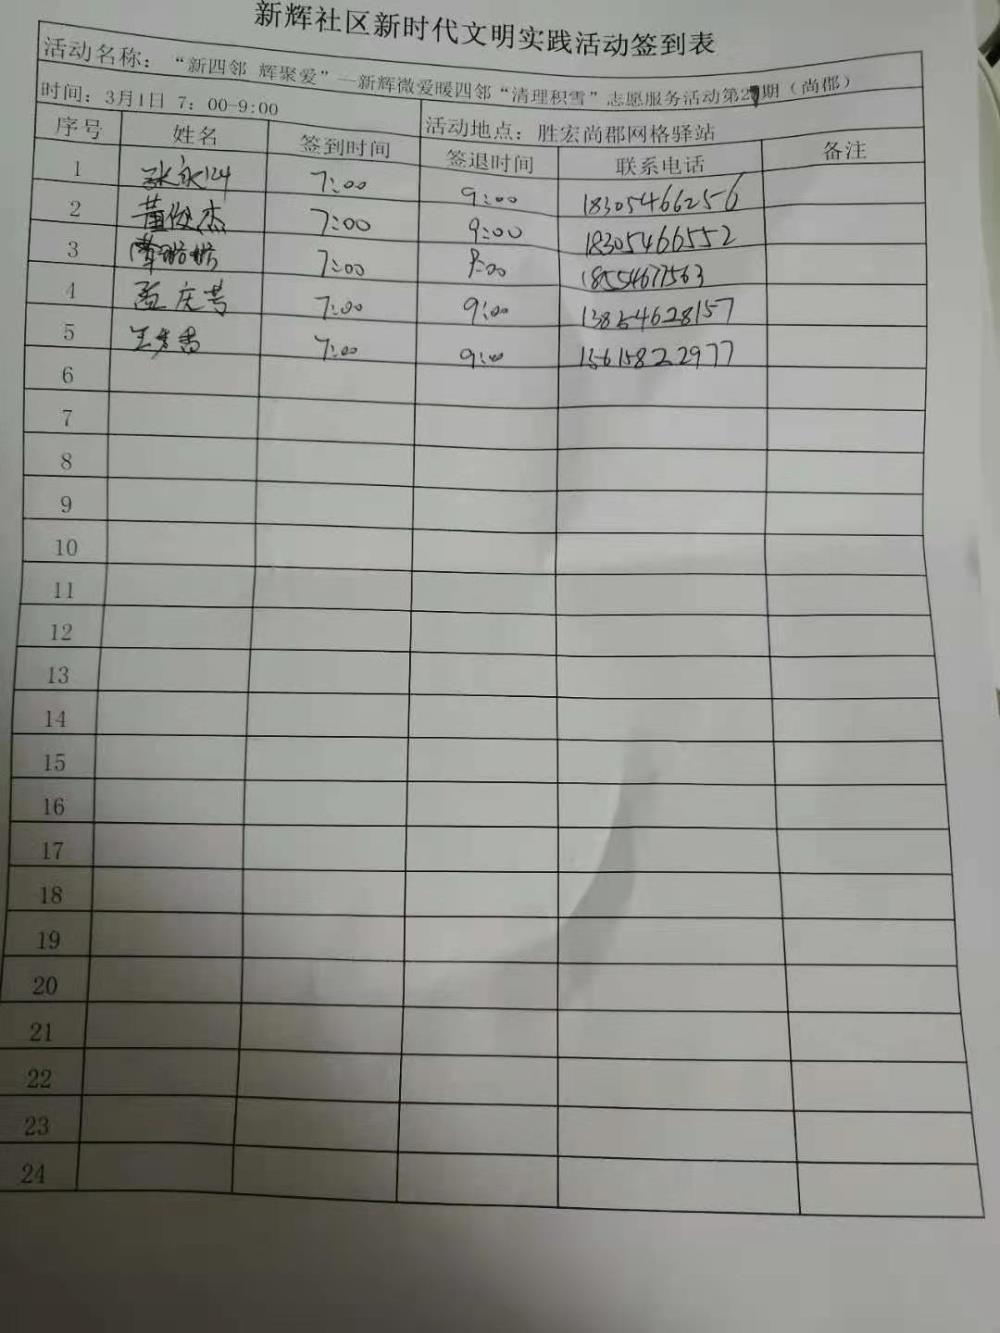 新辉社区新时代文明实践活动签到表
活动名称：“新四邻 辉聚爱”—新辉微爱暖四邻“清理积雪”志愿服务活动第2期（尚郡）
时间：3月1日 7：00-9:00 活动地点：胜宏尚郡网格驿站
序号 姓名 签到时间 签退时间 联系电话 备注
1 7:00 9:00 18305466256
2 董俊杰 7:00 9:00 18305466552
3 7:00 9:00 18554677563
4 孟庆芳 7:00 9:00 13854628157
5 7:00 9:00 15615822977
6
7
8
9
10
11
12
13
14
15
16
17
18
19
20
21
22
23
24